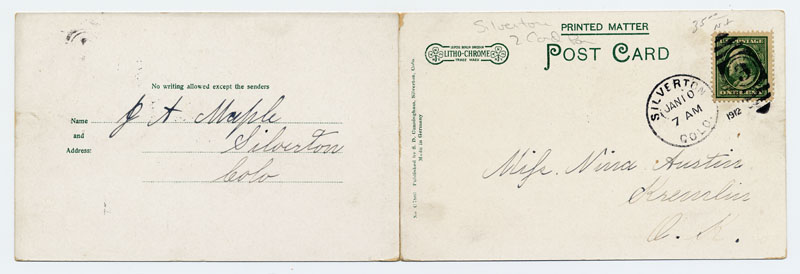 No writing allowed except the senders
Name
and
Address:
J A. Mapple
Silverton
Colo
Silverton
2 Card
35—
LEIPZIG BERLIN DRESDEN
LITHO-CHROME
TRADE MARK
PRINTED MATTER
POST CARD
Published by S. D. Cunningham, Silverton, Colo.
Made in Germany
U.S. POSTAGE
ONE CENT
SILVERTON
JAN 10
7 AM
COLO.
1912
Miss. Nina Austin
Kremlin
O. K.